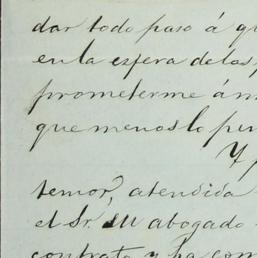 dar todo paso á qu
en la esfera de los
prometerme á m
que menos lo pen
Y
temor, atendida
el Sr. su abogado
contrato y ha com